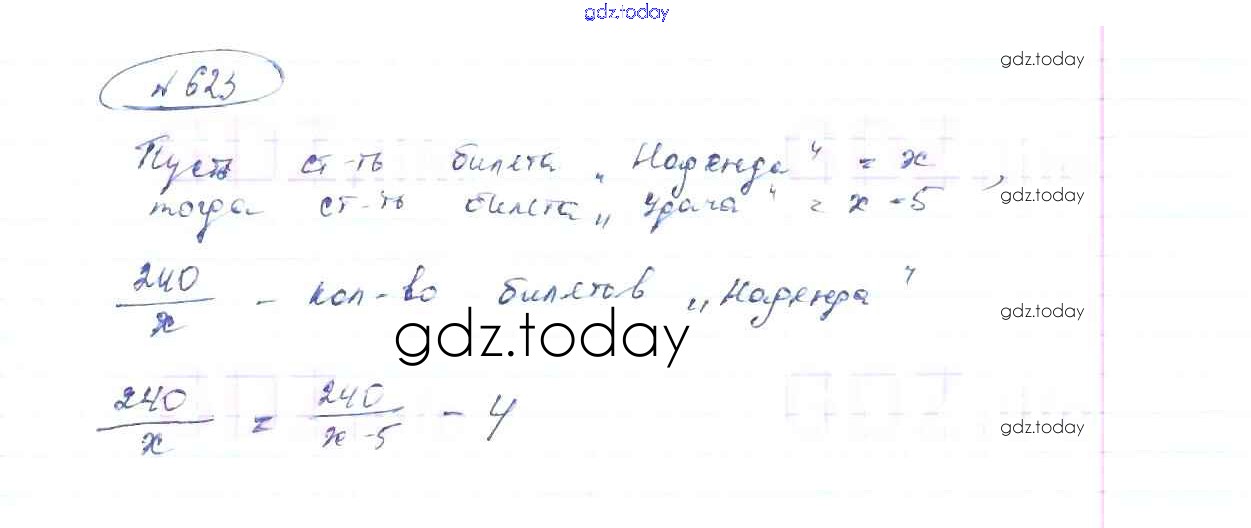 gdz.today
№ 623
gdz.today
Пусть ст-ть билета „Надежда“ = x,
gdz.today
тогда ст-ть билета „Удача“ = x - 5
240/x - кол-во билетов „Надежда“
gdz.today
gdz.today
240/x = 240/(x - 5) - 4
gdz.today